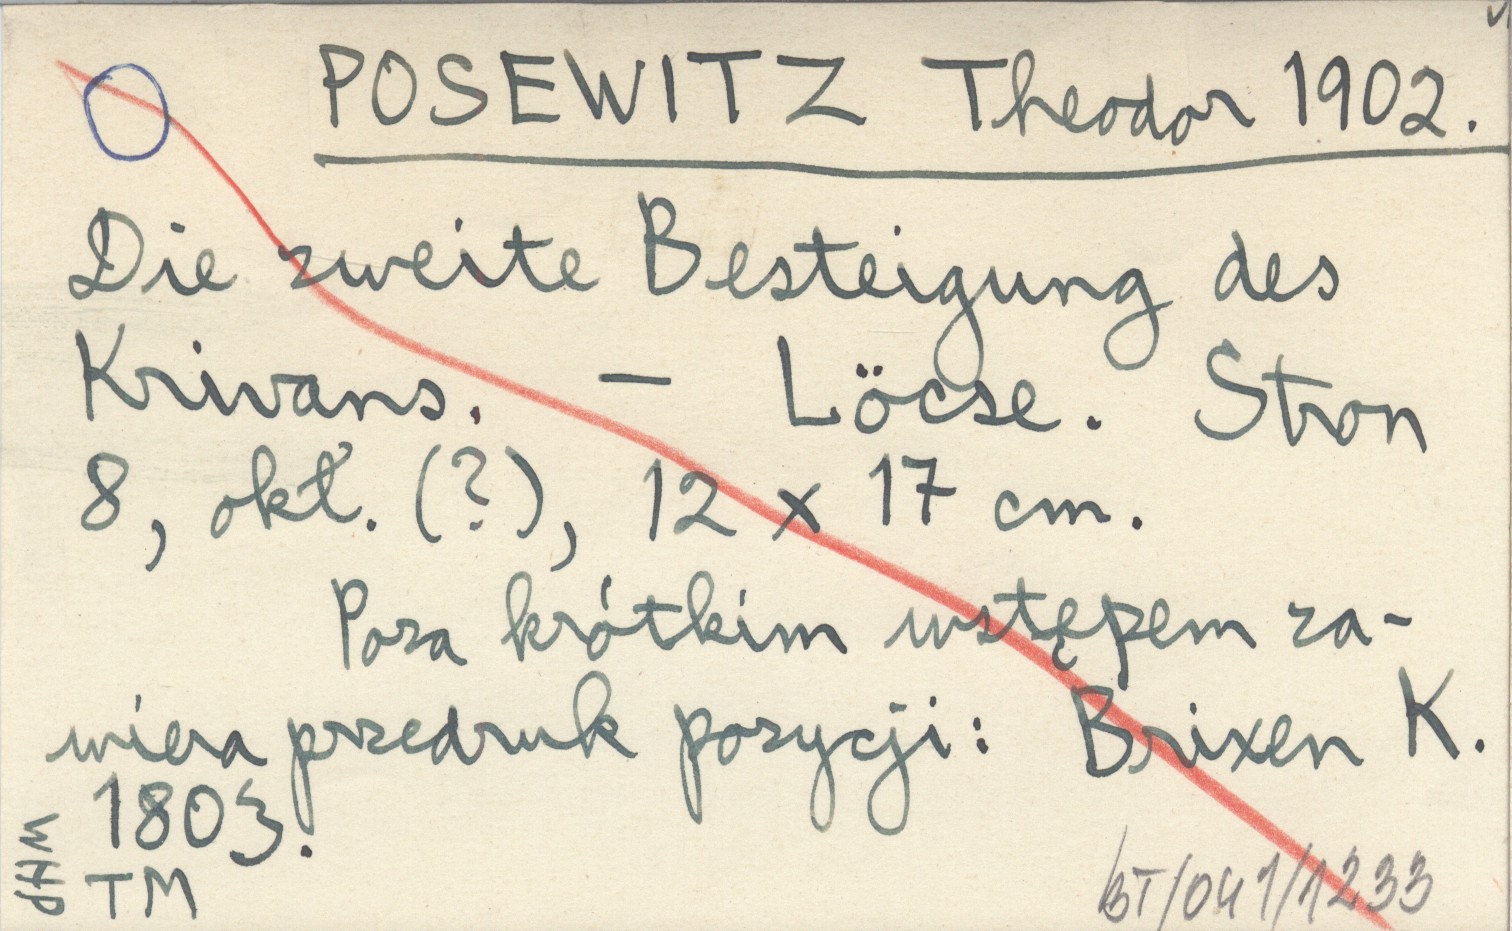 POSEWITZ Theodor 1902.
Die zweite Besteigung des
Krivans. — Löcse. Stron
8, okt. (?), 12 x 17 cm.
Poza krótkim wstępem za-
wiera przedruk pozycji: Brixen K.
1803.
WHP
TM
BT/041/1233